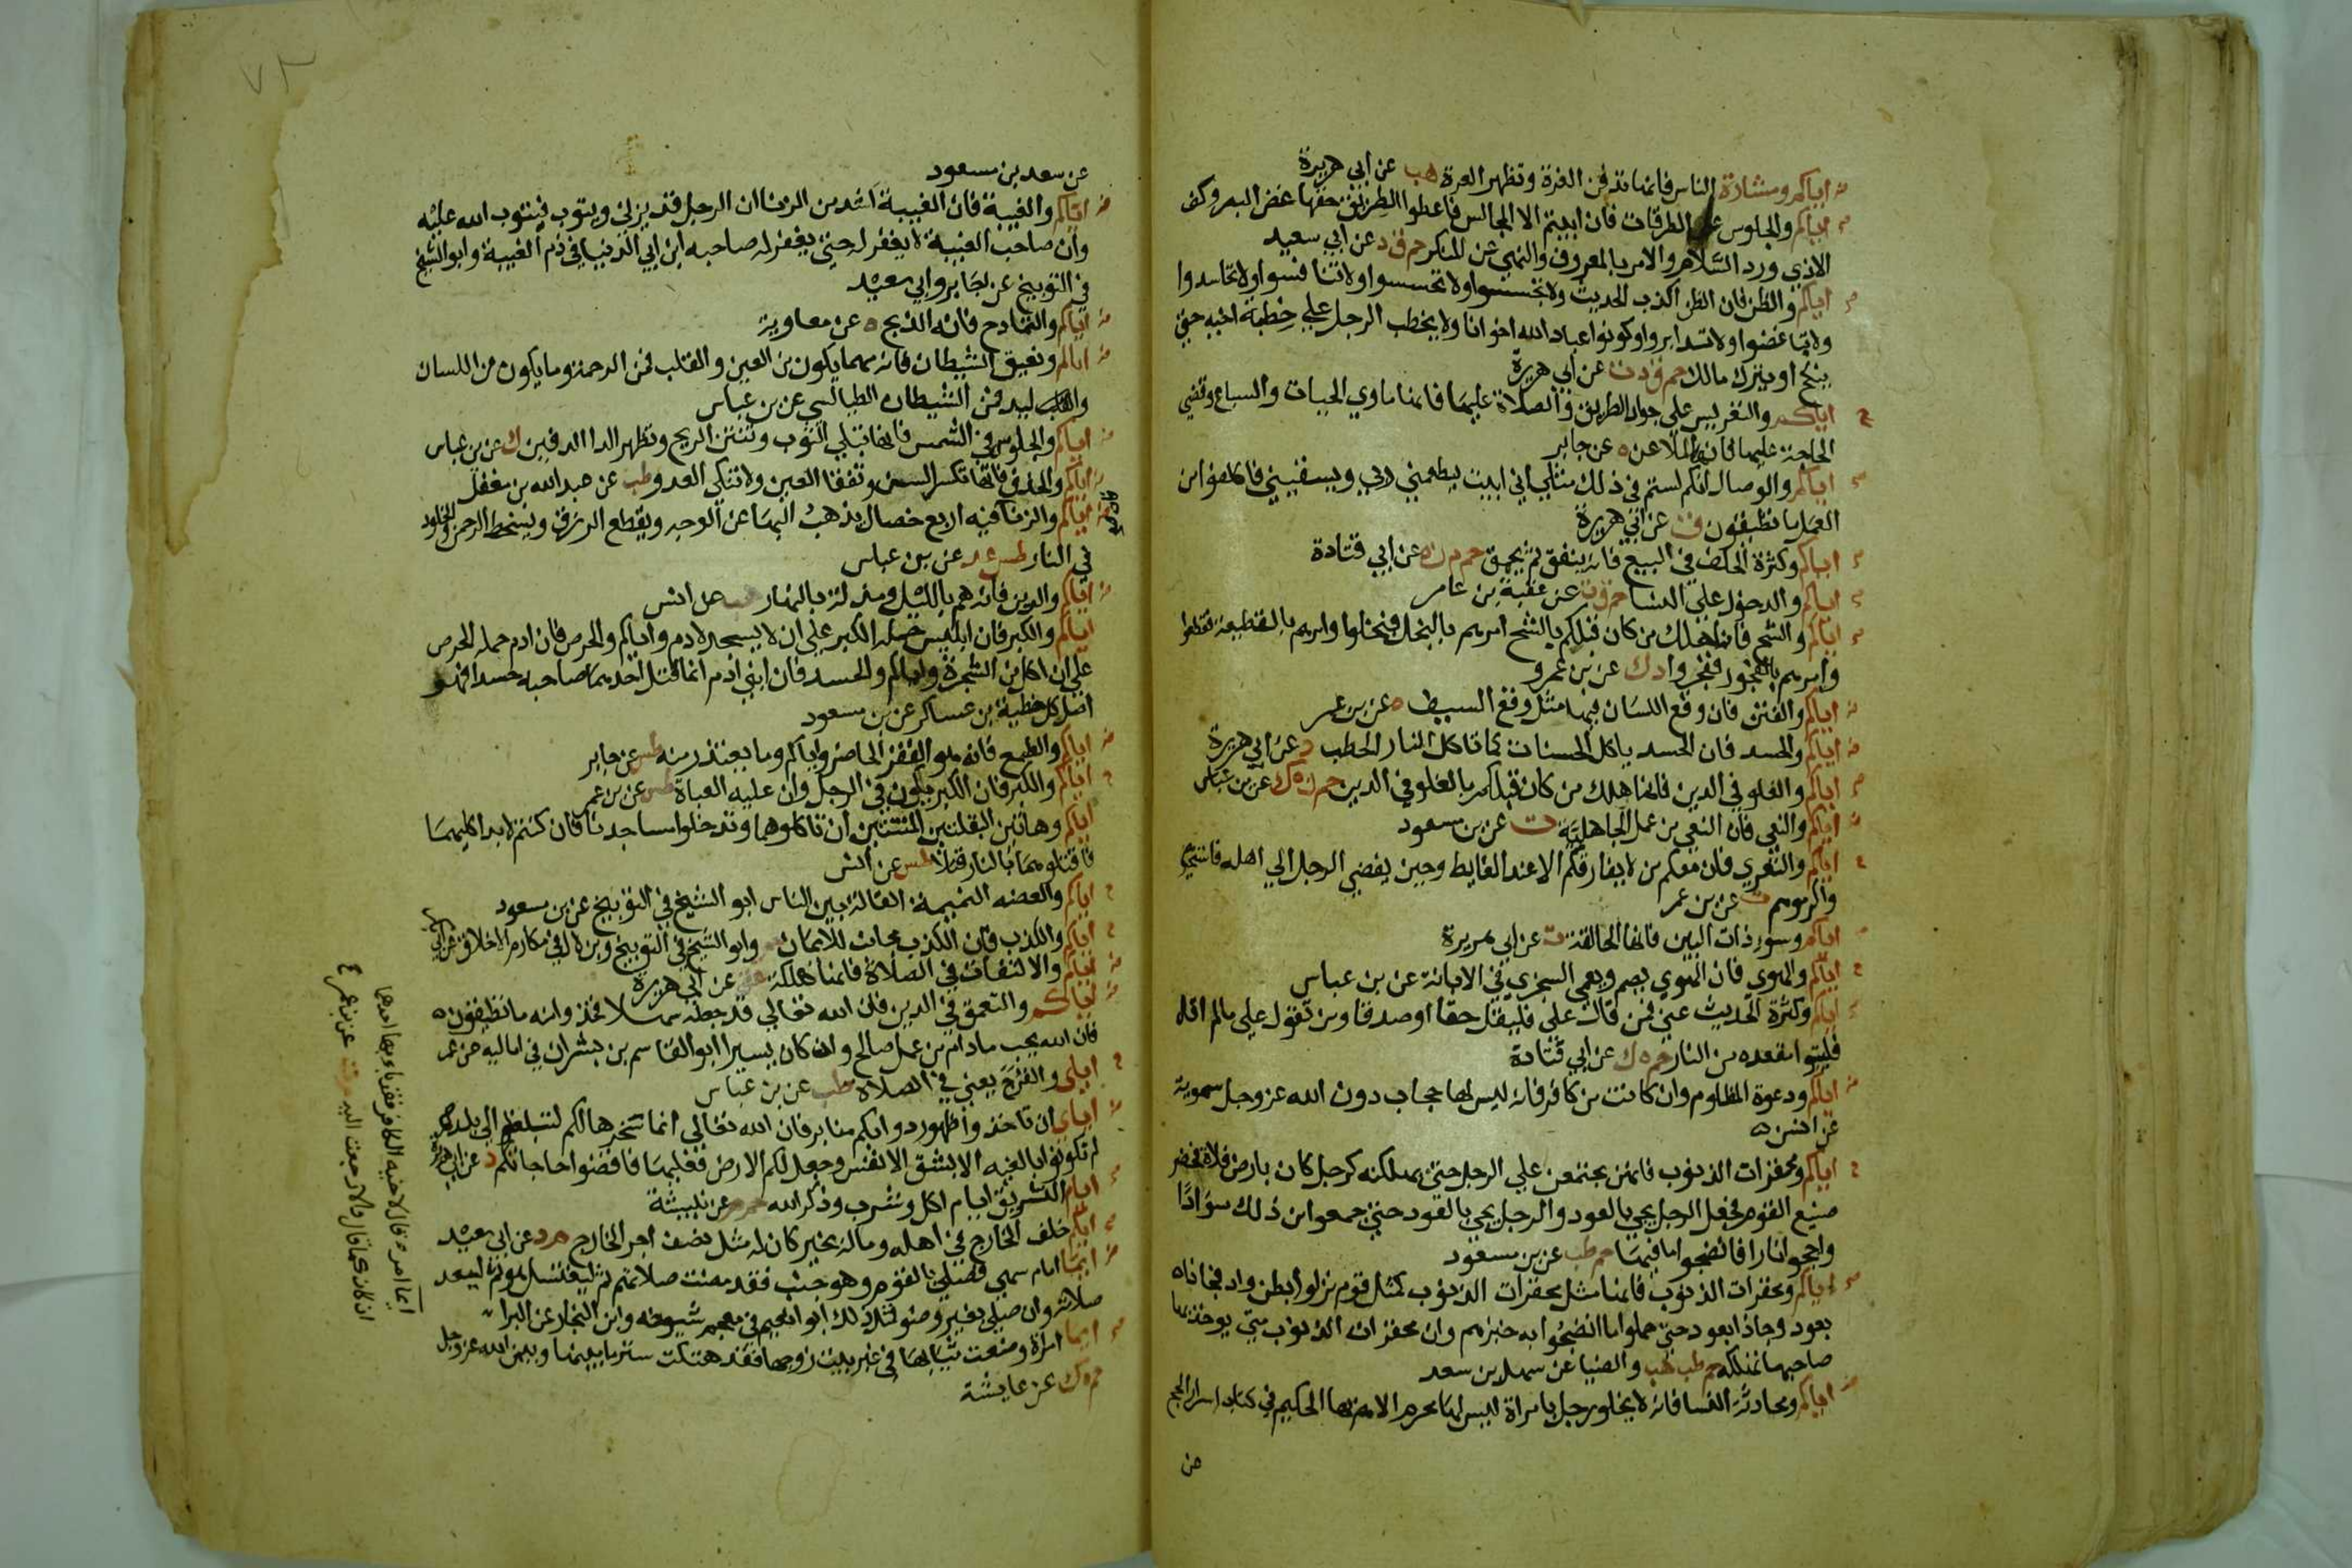 اياكم ومشادة الناس فانها تدفن الغرة وتظهر العرة هب عن ابي هريرة
اياكم والجلوس على الطرقات فان ابيتم الا المجالس فاعطوا الطريق حقها غض البصر وكف
الاذي ورد السلام والامر بالمعروف والنهي عن المنكر حم ق د عن ابي سعيد
اياكم والظن فان الظن اكذب الحديث ولا تجسسوا ولا تحسسوا ولا تنافسوا ولا تحاسدوا
ولا تباغضوا ولا تدابروا وكونوا عباد الله اخوانا ولا يخطب الرجل علي خطبة اخيه حتي
ينكح او يترك مالك حم ق د ت عن ابي هريرة
اياكم والتعريس علي جواد الطريق والصلاة عليها فانها ماوي الحيات والسباع وقضي
الحاجة عليها فانها الملاعن ه عن جابر
اياكم والوصال انكم لستم في ذلك مثلي اني ابيت يطعمني ربي ويسقيني فاكلفوا من
العمل ما تطيقون ق عن ابي هريرة
اياكم وكثرة الحلف في البيع فانه ينفق ثم يمحق حم م ن ه عن ابي قتادة
اياكم والدخول علي النسا حم ق ت عن عقبة بن عامر
اياكم والشح فانما هلك من كان قبلكم بالشح امرهم بالبخل فبخلوا وامرهم بالقطيعة فقطعوا
وامرهم بالفجور ففجروا د ك عن بن عمرو
اياكم والفتن فان وقع اللسان فيها مثل وقع السيف ه عن بن عمر
اياكم والحسد فان الحسد ياكل الحسنات كما تاكل النار الحطب د عن ابي هريرة
اياكم والغلو في الدين فانما هلك من كان قبلكم بالغلو في الدين حم ن ه ك عن بن عباس
اياكم والنعي فان النعي من عمل الجاهلية ت عن بن مسعود
اياكم والتعري فان معكم من لا يفارقكم الا عند الغايط وحين يفضي الرجل الي اهله فاستحيوهم
واكرموهم ت عن بن عمر
اياكم وسوء ذات البين فانها الحالقة ت عن ابي هريرة
اياكم والهوي فان الهوي يصم ويعمي السجزي في الابانة عن بن عباس
اياكم وكثرة الحديث عني فمن قال علي فليقل حقا او صدقا ومن تقول علي ما لم اقل
فليتبوا مقعده من النار حم ه ك عن ابي قتادة
اياكم ودعوة المظلوم وان كانت من كافر فانه ليس لها حجاب دون الله عز وجل سموية
عن انس ه
اياكم ومحقرات الذنوب فانهن يجتمعن علي الرجل حتي يهلكنه كرجل كان بارض فلاة فحضر
صنيع القوم فجعل الرجل يجي بالعود والرجل يجي بالعود حتي جمعوا من ذلك سوادا
واججوا نارا فانضجوا ما فيها حم طب عن بن مسعود
اياكم ومحقرات الذنوب فانما مثل محقرات الذنوب كمثل قوم نزلوا بطن واد فجا ذا
بعود وجا ذا بعود حتي حملوا ما انضجوا به خبزهم وان محقرات الذنوب متي يوخذ بها
صاحبها تهلكه حم طب هب والضيا عن سهل بن سعد
اياكم ومحادثة النسا فانه لا يخلو رجل بامراة ليس لها محرم الا هم بها الحكيم في كتاب اسرار الحج
عن
٧٣
عن سعد بن مسعود
اياكم والغيبة فان الغيبة اشد من الزنا ان الرجل قد يزني ويتوب فيتوب الله عليه
وان صاحب الغيبة لا يغفر له حتي يغفر له صاحبه ابن ابي الدنيا في ذم الغيبة وابو الشيخ
في التوبيخ عن جابر وابي سعيد
اياكم والتمادح فانه الذبح ه عن معاوية
اياكم ونعيق الشيطان فانه مهما يكون من العين والقلب فمن الرحمة وما يكون من اللسان
واليد فمن الشيطان الطيالسي عن بن عباس
اياكم والجلوس في الشمس فانها تبلي الثوب وتنتن الريح وتظهر الدا الدفين ك عن بن عباس
اياكم والخذف فانها تكسر السن وتفقا العين ولا تنكي العدو طب عن عبد الله بن مغفل
اياكم والزنا فيه اربع خصال يذهب البها عن الوجه ويقطع الرزق ويسخط الرحمن والخلود
في النار طس عد عن بن عباس
اياكم والدين فانه هم بالليل ومذلة بالنهار هب عن انس
اياكم والكبر فان ابليس حمله الكبر علي ان لا يسجد لادم واياكم والحرص فان ادم حمله الحرص
علي ان اكل من الشجرة واياكم والحسد فان ابني ادم انما قتل احدهما صاحبه حسدا فهو
اصل كل خطية بن عساكر عن بن مسعود
اياكم والطمع فانه هو الفقر الحاضر واياكم وما يعتذر منه طس عن جابر
اياكم والكبر فان الكبر يكون في الرجل وان عليه العباة طس عن بن عمر
اياكم وهاتين البقلتين المنتنتين ان تاكلوهما وتدخلوا مساجدنا فان كنتم لا بد اكليهما
فاقتلوهما بالنار قتلا طس عن انس
اياكم والعضه النميمة القالة بين الناس ابو الشيخ في التوبيخ عن بن مسعود
اياكم والكذب فان الكذب مجانب للايمان حم وابو الشيخ في التوبيخ وبن لال في مكارم الاخلاق عن ابي بكر
اياكم والالتفات في الصلاة فانها هلكة عق عن ابي هريرة
اياكم والتعمق في الدين فان الله تعالي قد جعله سهلا فخذوا منه ما تطيقون
فان الله يحب ما دام من عمل صالح وان كان يسيرا ابو القاسم بن بشران في اماليه عن عمر
اياي والفرج يعني في الصلاة طب عن بن عباس
اياي ان تاخذوا ظهور دوابكم منابر فان الله تعالي انما سخرها لكم لتبلغكم الي بلد
لم تكونوا بالغيه الا بشق الانفس وجعل لكم الارض فعليها فاقضوا حاجاتكم د عن ابي هريرة
ايام التشريق ايام اكل وشرب وذكر الله حم م عن نبيشة
ايكم خلف الخارج في اهله وماله بخير كان له مثل نصف اجر الخارج م د عن ابي سعيد
ايما امام سهي فصلي بالقوم وهو جنب فقد مضت صلاتهم ثم ليغتسل هو ثم ليعد
صلاته وان صلي بغير وضو فمثل ذلك ابو نعيم في معجم شيوخه وابن النجار عن البرا
ايما امراة وضعت ثيابها في غير بيت زوجها فقد هتكت ستر ما بينها وبين الله عز وجل
حم ه ك عن عايشة
ايما امرء قال لاخيه كافر فقد باء بها احدهما
ان كان كما قال والا رجعت اليه م ت عن بن عمر